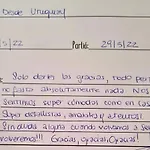 Desde Uruguay!
5/22 Partió: 29/5/22
Solo darles las gracias, nada
no falta absolutamente nada. Nos
sentimos super cómodos como en
super detallistas, amables y atentos!
Sin duda alguna cuando volvamos a
volveremos!!! Gracias, Gracias, Gracias!